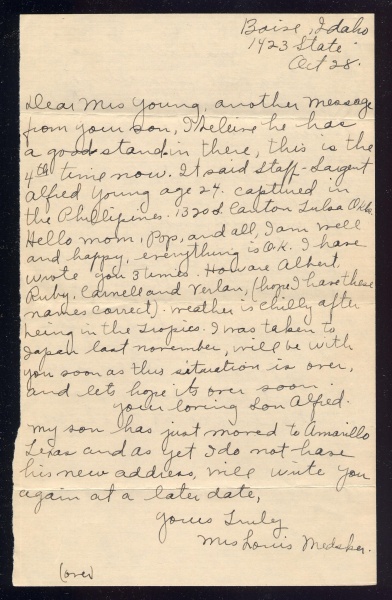 Boise, Idaho
1423 State
Oct 28.
Dear Mrs Young, another message
from your son, I beleive he has
a good stand in there, this is the
4th time now. It said Staff-Sargent
Alfred Young age 24. captured in
the Phillipines. 1320 S. Canton Tulsa Okla.
Hello mom, Pop, and all, I am well
and happy, everything is O.K. I have
wrote you 3 times. How are Albert,
Ruby, Carnell and Verlan, (hope I have these
names correct). weather is chilly after
being in the tropics. I was taken to
Japan last november, will be with
you soon as this situation is over,
and lets hope its over soon.
your loving Son Alfred.
my son has just moved to Amarillo
Texas and as yet I do not have
his new address, will write you
again at a later date,
yours Truley
Mrs Louis Medsker.
(over)